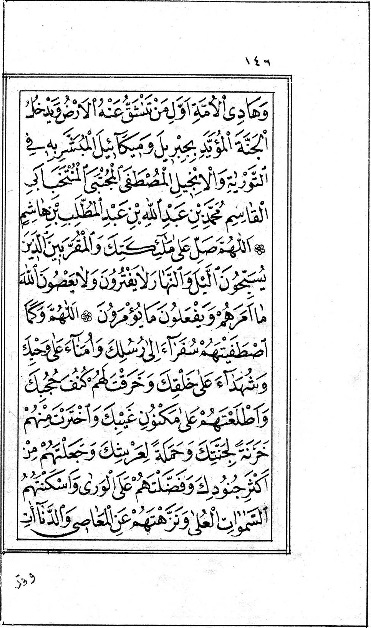 ١٤٦
وَهَادِى الْاُمَّةِ اَوَّلِ مَنْ تَنْشَقُّ عَنْهُ الْاَرْضُ وَيَدْخُلُ
الْجَنَّةَ الْمُؤَيَّدِ بِجِبْرِيلَ وَمِيكَآئِيلَ الْمُبَشَّرِ بِهِ فِى
التَّوْرٰيةِ وَالْاِنْجِيلِ الْمُصْطَفَى الْمُجْتَبَى الْمُنْتَخَبِ اَبِى
الْقَاسِمِ مُحَمَّدِ بْنِ عَبْدِ اللّٰهِ بْنِ عَبْدِ الْمُطَّلِبِ بْنِ هَاشِمٍ
❊ اَللّٰهُمَّ صَلِّ عَلٰى مَلٰٓئِكَتِكَ وَالْمُقَرَّبِينَ الَّذِينَ
يُسَبِّحُونَ الَّيْلَ وَالنَّهَارَ لَا يَفْتُرُونَ وَلَا يَعْصُونَ اللّٰهَ
مَا اَمَرَهُمْ وَيَفْعَلُونَ مَا يُؤْمَرُونَ ❊ اَللّٰهُمَّ وَكَمَا
اصْطَفَيْتَهُمْ سُفَرَآءَ اِلٰى رُسُلِكَ وَاُمَنَآءَ عَلٰى وَحْيِكَ
وَشُهَدَآءَ عَلٰى خَلْقِكَ وَخَرَقْتَ لَهُمْ كُنُفَ حُجُبِكَ
وَاَطْلَعْتَهُمْ عَلٰى مَكْنُونِ غَيْبِكَ وَاخْتَرْتَ مِنْهُمْ
خَزَنَةً لِجَنَّتِكَ وَحَمَلَةً لِعَرْشِكَ وَجَعَلْتَهُمْ مِنْ
اَكْثَرِ جُنُودِكَ وَفَضَّلْتَهُمْ عَلَى الْوَرٰى وَاَسْكَنْتَهُمُ
السَّمٰوَاتِ الْعُلٰى وَنَزَّهْتَهُمْ عَنِ الْمَعَاصِى وَالدَّنَآءَاتِ